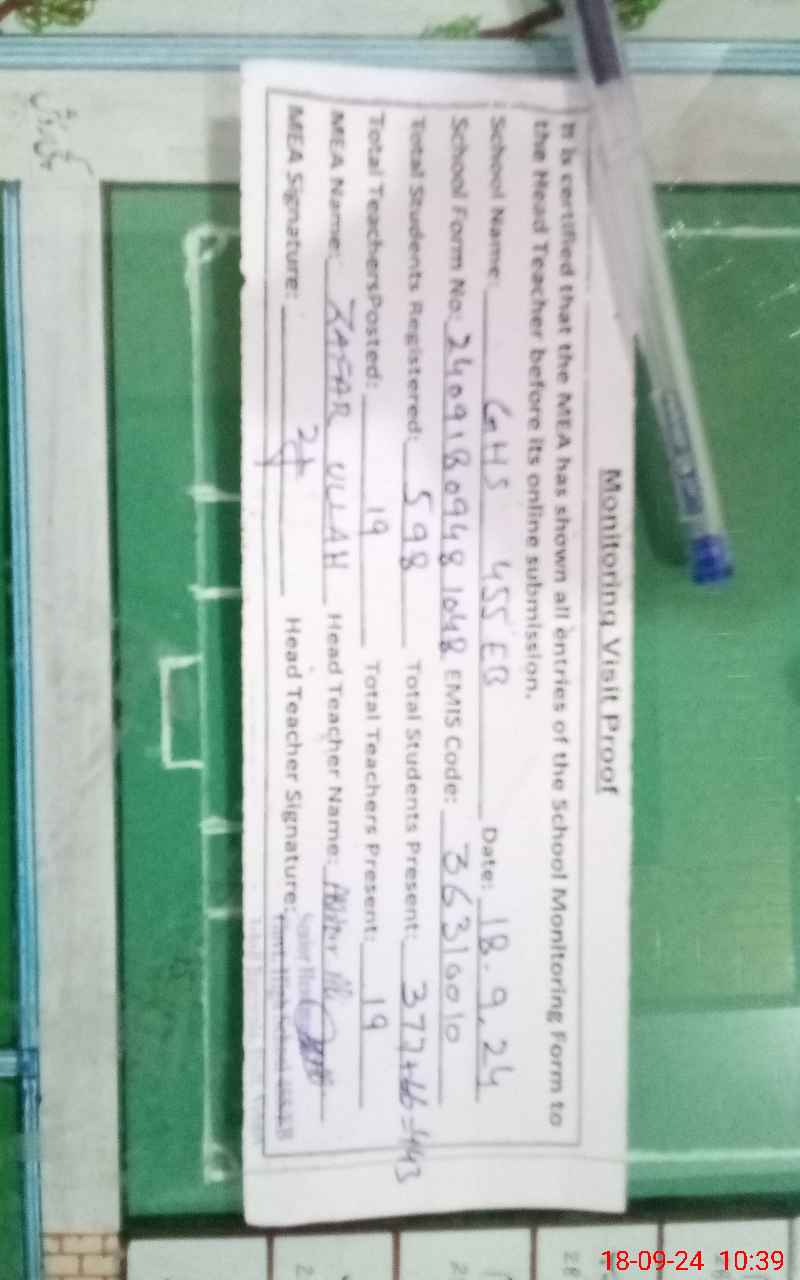 Monitoring Visit Proof
It is certified that the MEA has shown all entries of the School Monitoring Form to
the Head Teacher before its online submission.
School Name: GHS 455 EB Date: 18.9.24
School Form No: 24091809481048 EMIS Code: 36310010
Total Students Registered: 598 Total Students Present: 377+66=443
Total TeachersPosted: 19 Total Teachers Present: 19
MEA Name: ZAFAR ULLAH Head Teacher Name:
MEA Signature: Head Teacher Signature:
18-09-24 10:39